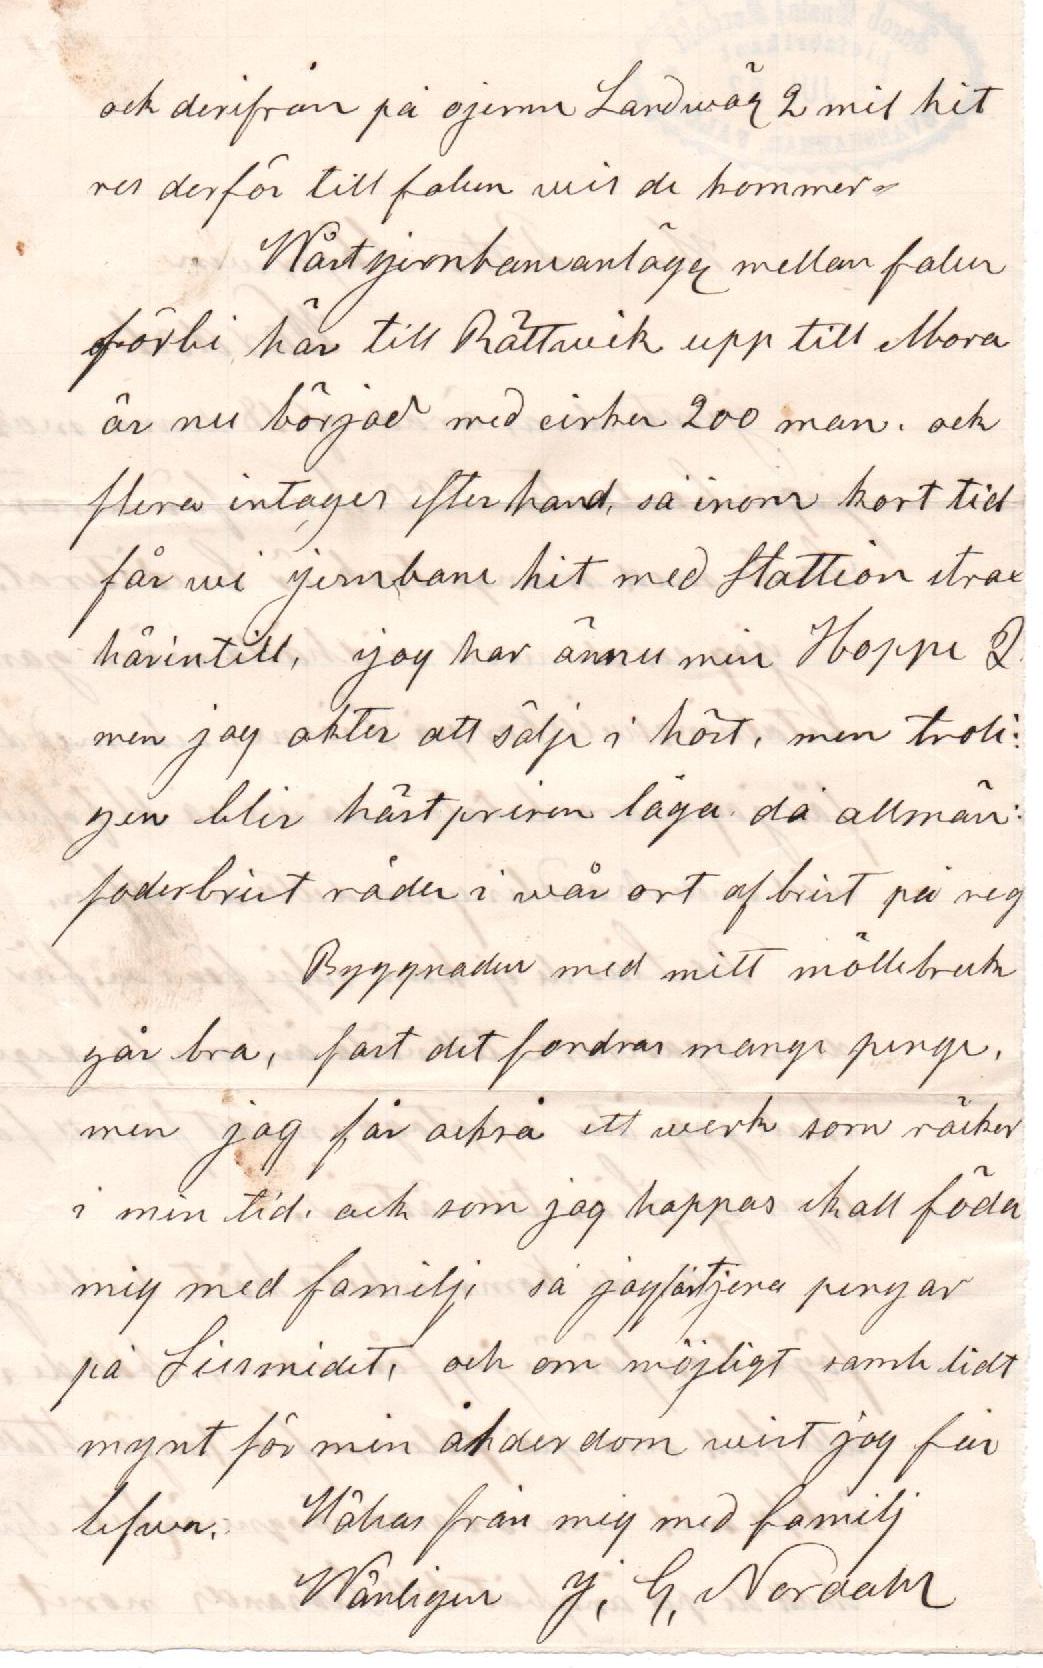 och derifrån på ojemn Landwäg 2 mil hit
res derför till falun wis de kommer=
Wårt jernbaneanlägg mellan falun
förbi här till Rättwik upp till Mora
är nu börjad med cirka 200 man. och
flera intages efter hand, så inom kort tid
får wi jernbane hit med Stattion strax
härintill, jag har ännu min Hoppe 2.
men jag akter att sälje i höst, men troli:
gen blir hästprisen låga då allmän:
foderbrist råder i wår ort af brist på reg
Byggnaden med mitt möllebruk
går bra, fast det fordras mange penge,
men jag får också ett werk som räcker
i min tid. ock som jag hoppas skall föda
mig med familje så jag förtjena pengar
på Liesmidet, och om möjligt samle lidt
mynt för min ålderdom wist jag får
lefwa. Hälsas från mig med familj
Wänligen J, G, Nordahl